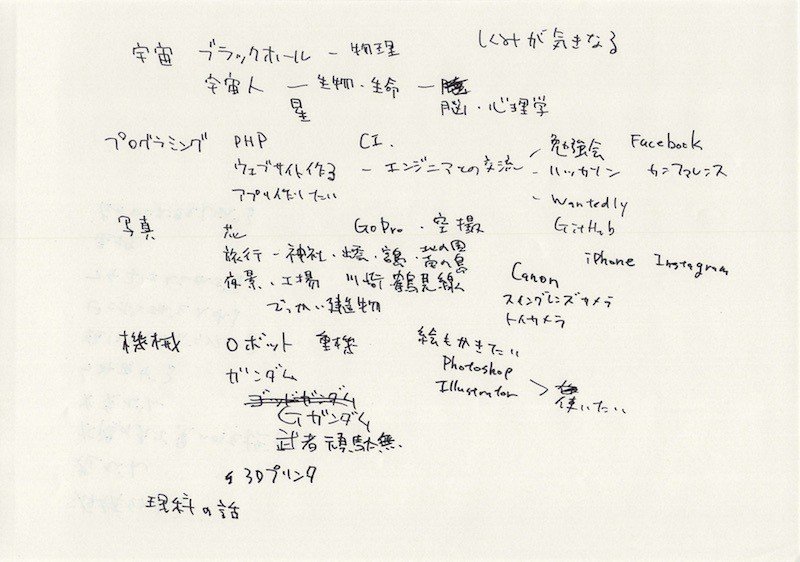 しくみが気きなる
宇宙 ブラックホール － 物理
宇宙人 － 生物・生命 －
星 脳・心理学
プログラミング PHP CI.
勉強会 Facebook
ウェブサイト作る － エンジニアとの交流 － ハッカソン カンファレンス
アプリ作りしたい － Wantedly
GitHub
写真 花 GoPro・空撮
旅行 － 神社・ ・ ・北の国
・南の島
夜景・工場 川崎・鶴見線
でっかい建造物
iPhone Instagram
Canon
スイングレンズカメラ
トイカメラ
機械 ロボット 重機 絵もかきたい
ガンダム Photoshop
Illustrator ＞ 使いたい
ゴッドガンダム
Gガンダム
武者頑駄無
3Dプリンタ
理科の話